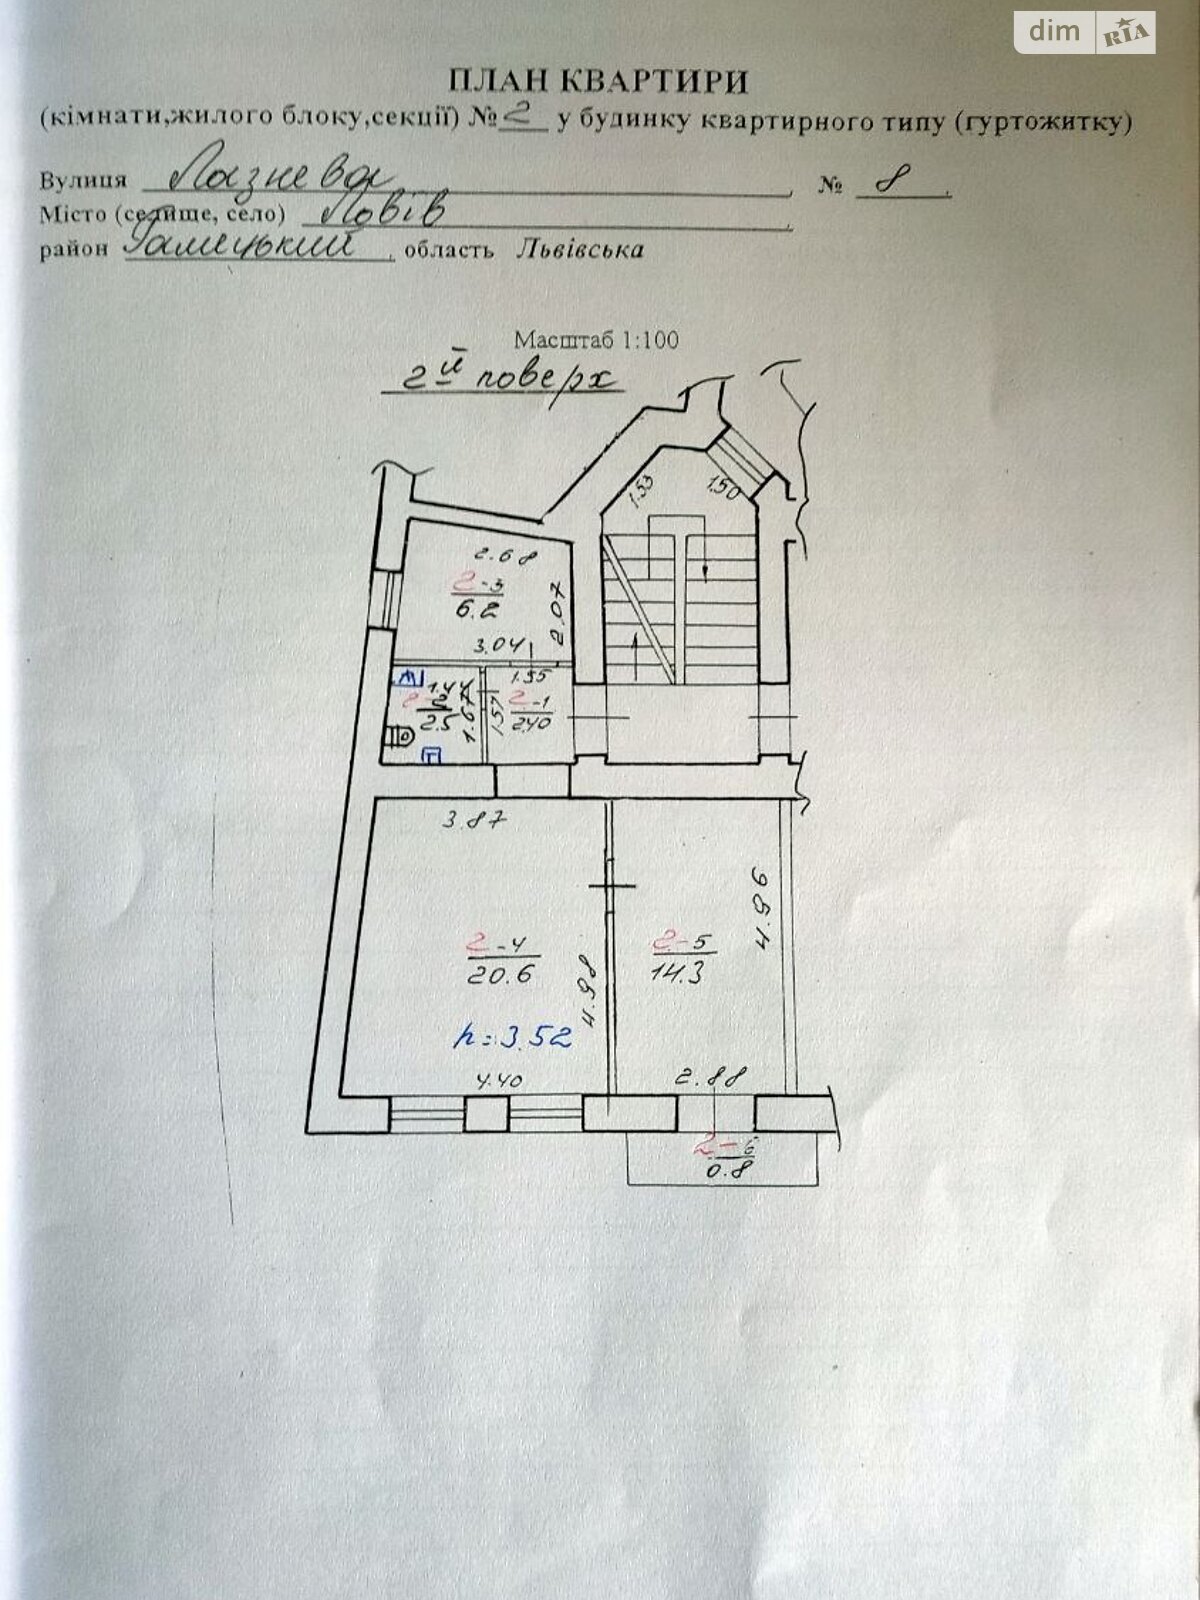 dim RIA
ПЛАН КВАРТИРИ
(кімнати,жилого блоку,секції) № 2 у будинку квартирного типу (гуртожитку)
Вулиця Лазнева, № 8.
Місто (селище, село) Львів,
район Галицький, область Львівська
Масштаб 1:100
2й поверх
1.53
1.50
2.68
2-3
6.2
2.07
3.04
1.55
1.44
2-1
2.40
2.5
1.67
1.57
Г
3.87
4.96
2-4
20.6
2-5
14.3
4.98
h=3.52
4.40
2.88
2-6
0.8